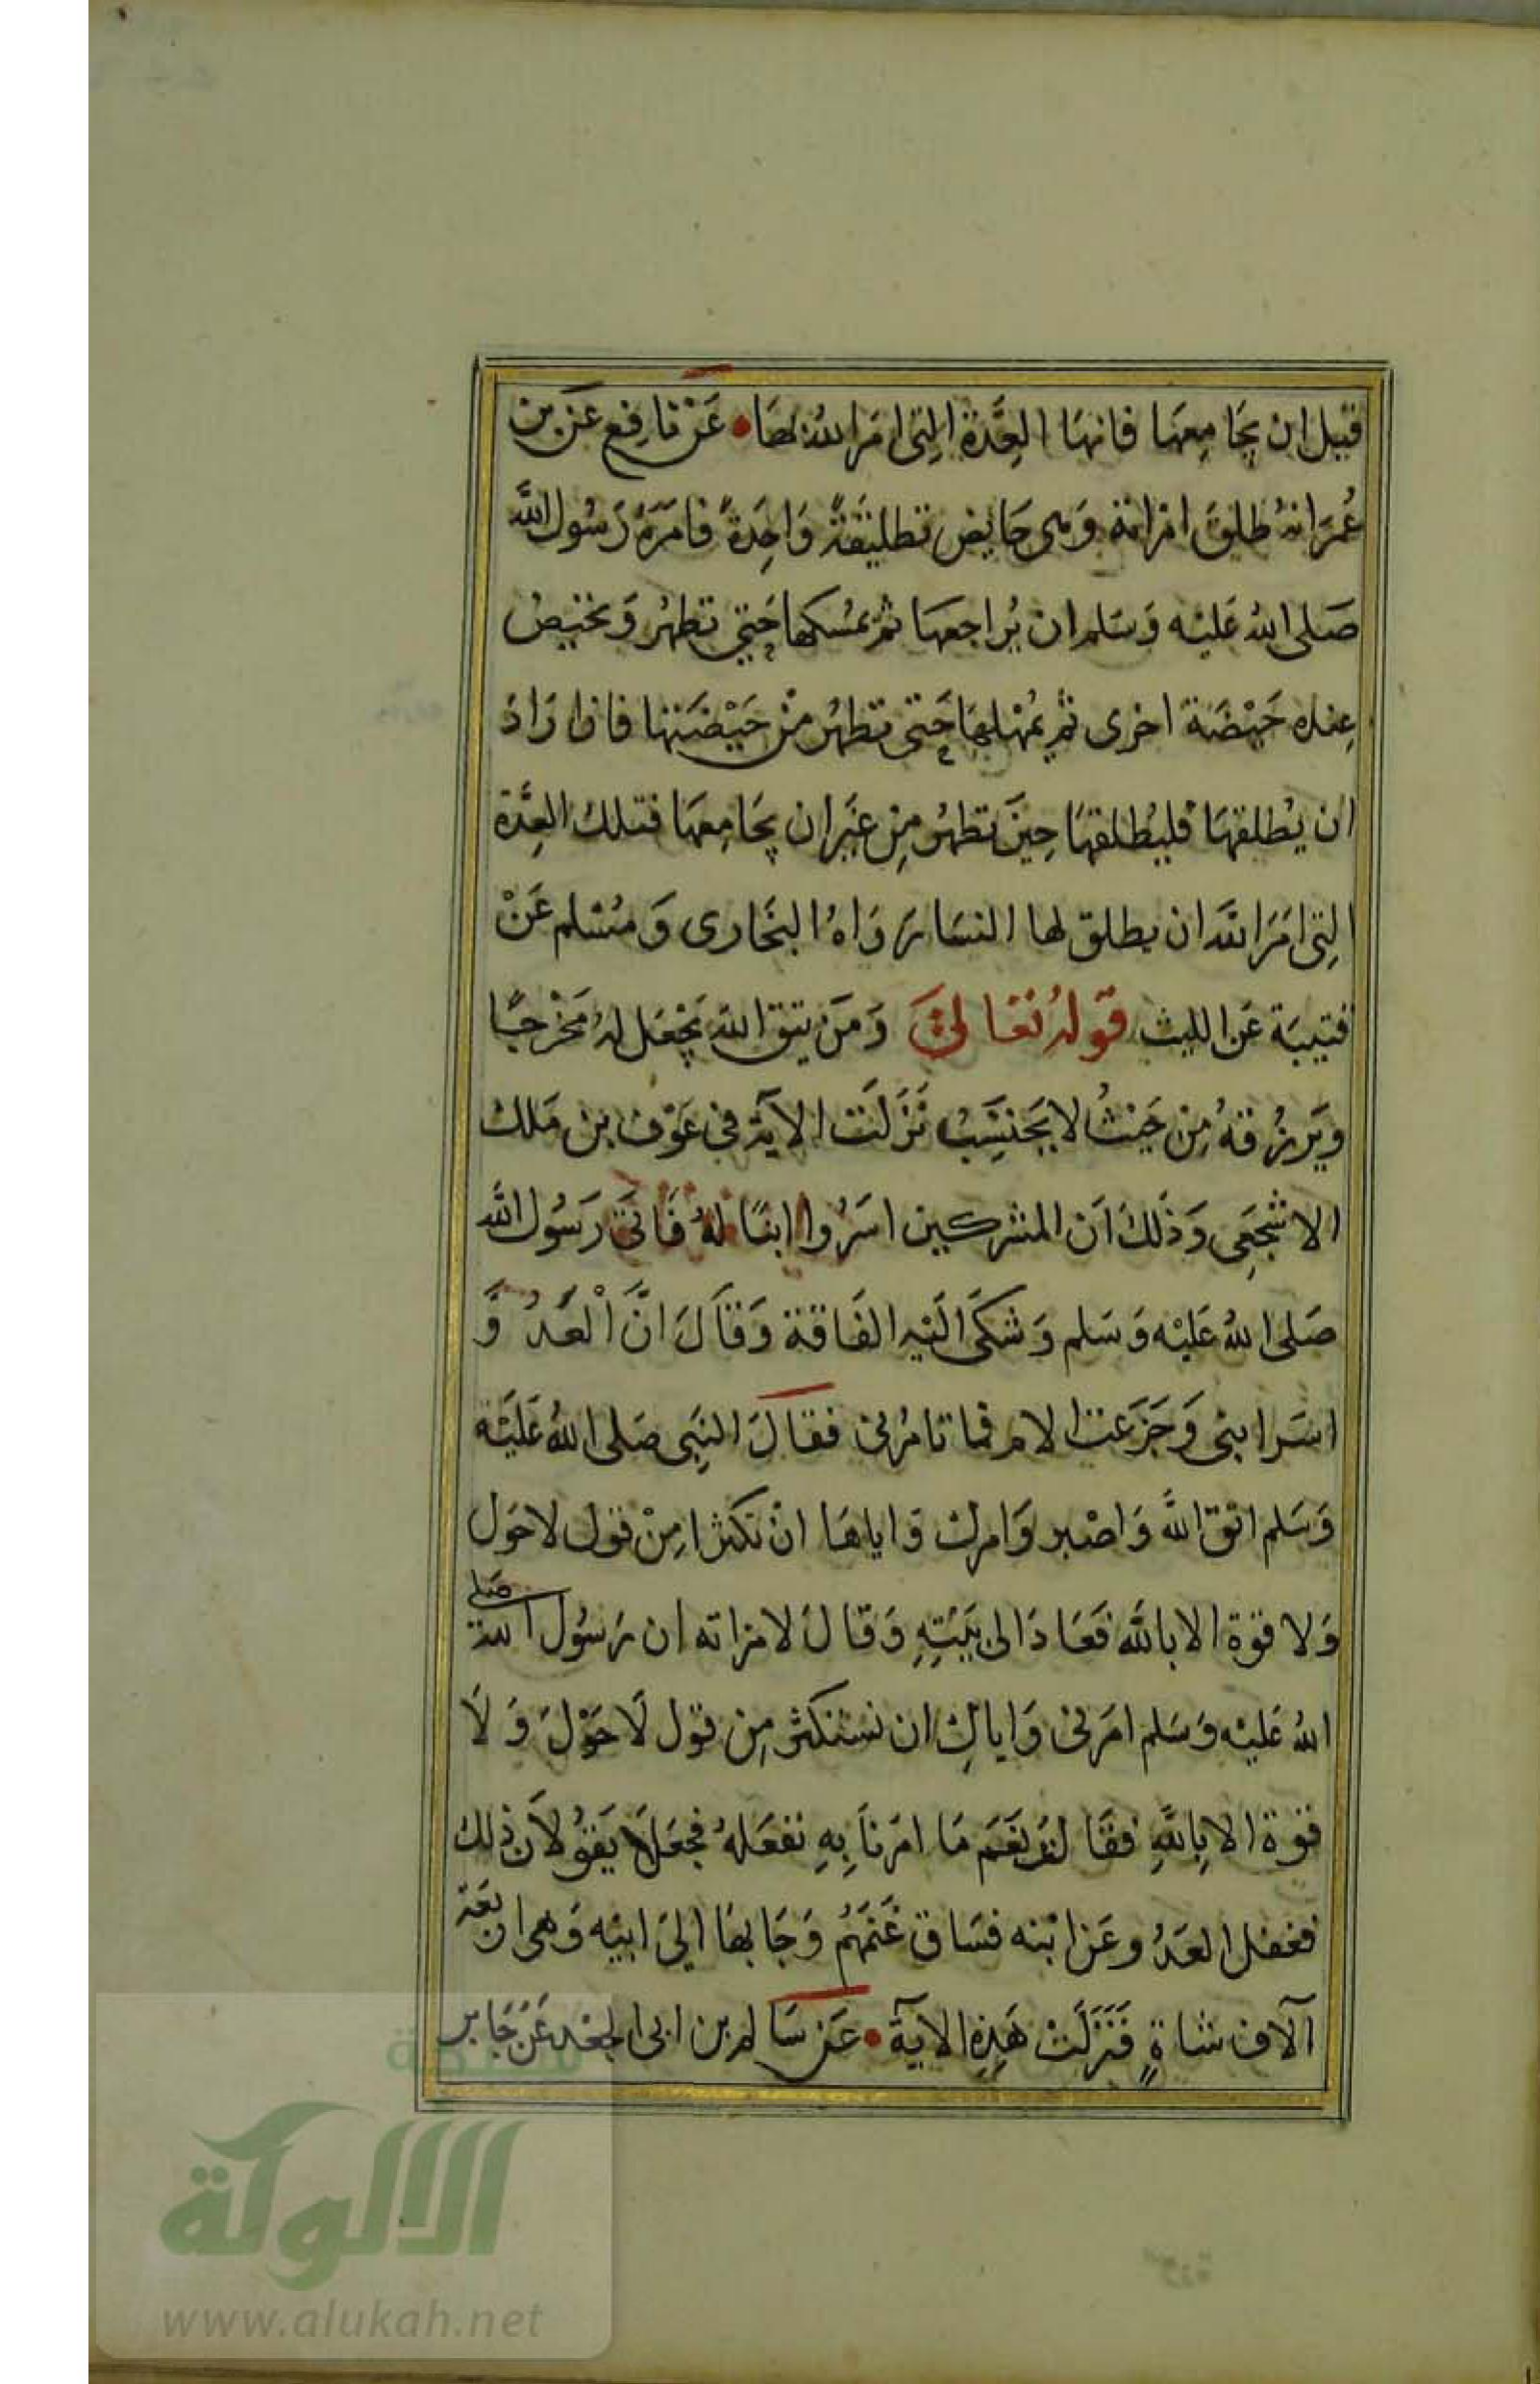 قبل ان يجَامِعهَا فانهَا العِدَّة التِي امَرَ اللهُ لهَا • عَنْ نَافِع عَن بن
عُمَرَ انهُ طلقَ امْرَاته وَهى حَايض تطليقَةً وَاحِدَةً فامَرَهُ رَسُول اللَّه
صَلى اللهُ عَليْه وَسَلم ان يُرَاجعهَا ثم يمْسكها حَتي تطهُر وَتحيضُ
عِنده حَيْضَة اخرى ثم يُمْهلهَا حَتى تطهُر مِنْ حَيْضَتها فاذا رَادَ
ان يُطلقهَا فليُطلقهَا حِينَ تطهُر مِنْ غَيْر ان يجَامِعهَا فتلك العِدَّة
التِى امَرَ اللَّه ان يطلق لها النسَا رَوَاهُ البخَارى وَمُسْلم عَنْ
قتيبَة عَن الليث قَولهُ تعَالىَ وَمَنْ يتق اللهَ يَجْعَل لهُ مَخْرَجًا
وَيَرزُقهُ مِن حَيْثُ لا يَحْتسِبُ نَزَلَت الآيَة فى عَوْف بن مَلك
الاشْجَعِى وَذَلكَ اَن المشركين اسَرُوا ابنًا لهُ فَاتَى رَسُول اللَّه
صَلى اللهُ عَليْه وَسَلم وَشكَى الَيْه الفَاقة وَقَالَ انَّ الْعَدُوَّ
اسَرَ ابنى وَجَزعَت الام فما تامُرُنى فقالَ النبِى صَلى اللهُ عَلَيْه
وَسَلم اتق اللَّهَ وَاصْبر وَامرك وَاياهَا انْ تكثرَا مِنْ قول لاحَول
وَلا قوة الا باللَّه فعَادَ الى بَيْتِهِ وَقالَ لامراته ان رَسُول الله صَلى
اللهُ عَليْه وَسَلم امَرنى وَاياكِ ان نستكثر مِن قول لَا حَوْلَ وَلَا
قوة الا بِاللَّهِ فقَالت نعَم مَا امَرنَا بِهِ نفعَلهُ فجعَلَا يَقُولَان ذلك
فغفل العَدُو عَن ابْنه فسَاق غَنَمَهُم وَجَا بهَا اليَ ابيْه وَهى اربعَة
آلاف شاةٍ فَنَزَلَتْ هَذِهِ الآيةَ • عَن سَالم بن ابى الجعْد عَنْ جَابر
شبكة
الالوكة
www.alukah.net